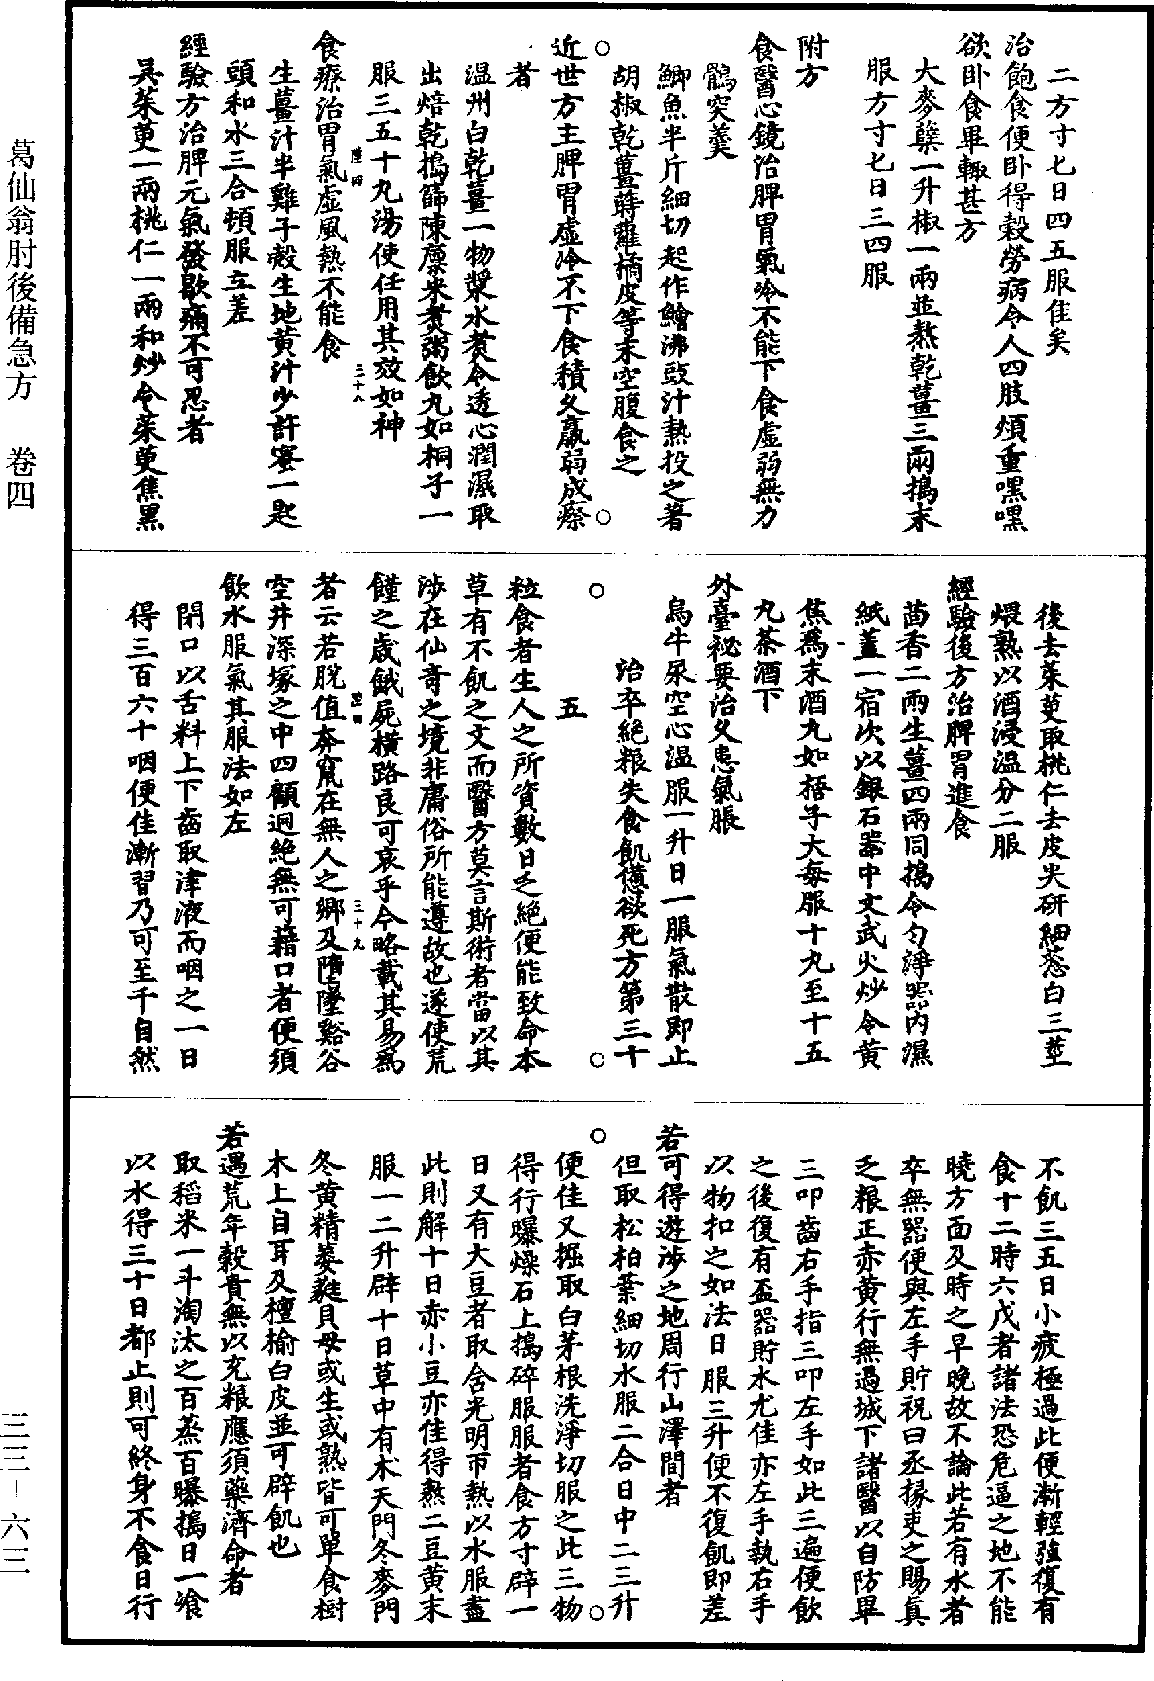 葛仙翁肘後備急方　卷四
三三－六三
二方寸七日四五服佳矣
治飽食便卧得穀勞病令人四肢煩重嘿嘿
欲卧食畢輙甚方
大麥蘖一升椒一兩並熬乾薑三兩搗末
服方寸七日三四服
附方
食醫心鏡治脾胃氣冷不能下食虛弱無力
鶻突羹
鯽魚半斤細切起作鱠沸豉汁熱投之著
胡椒乾薑蒔蘿橘皮等末空腹食之
近世方主脾胃虛冷不下食積久羸弱成瘵
者
温州白乾薑一物漿水煮令透心潤濕取
出焙乾搗篩陳廪米煮粥飲丸如桐子一
服三五十丸湯使任用其效如神
食療治胃氣虛風熱不能食
三十八
生薑汁半雞子殼生地黄汁少許蜜一匙
頭和水三合頓服立差
經驗方治脾元氣發歇痛不可忍者
吴茱萸一兩桃仁一兩和炒令茱萸焦黑
後去茱萸取桃仁去皮尖研細葱白三莖
煨熟以酒浸温分二服
經驗後方治脾胃進食
茴香二兩生薑四兩同搗令匀淨器内濕
紙蓋一宿次以銀石器中文武火炒令黄
焦爲末酒丸如梧子大每服十丸至十五
丸茶酒下
外臺祕要治久患氣脹
烏牛尿空心温服一升日一服氣散即止
治卒絶粮失食飢憊欲死方第三十
五
粒食者生人之所資數日乏絶便能致命本
草有不飢之文而醫方莫言斯術者當以其
涉在仙奇之境非庸俗所能遵故也遂使荒
饉之歲餓屍横路良可哀乎今略載其易爲
三十九
者云若脱值奔竄在無人之鄉及墮墜谿谷
空井深塚之中四顧迥絶無可藉口者便須
飲水服氣其服法如左
閉口以舌料上下齒取津液而咽之一日
得三百六十咽便佳漸習乃可至千自然
不飢三五日小疲極過此便漸輕强復有
食十二時六戊者諸法恐危逼之地不能
曉方面及時之早晚故不論此若有水者
卒無器便與左手貯祝曰丞掾吏之賜真
乏粮正赤黄行無過城下諸醫以自防畢
三叩齒右手指三叩左手如此三遍便飲
之後復有盃器貯水尤佳亦左手執右手
以物扣之如法日服三升便不復飢即差
若可得遊涉之地周行山澤間者
但取松柏葉細切水服二合日中二三升
便佳又掘取白茅根洗淨切服之此三物
得行曝燥石上搗碎服服者食方寸辟一
日又有大豆者取含光明帀熱以水服盡
此則解十日赤小豆亦佳得熬二豆黄末
服一二升辟十日草中有术天門冬麥門
冬黄精萎蕤貝母或生或熟皆可單食樹
木上自耳及檀榆白皮並可辟飢也
若遇荒年穀貴無以充粮應須藥濟命者
取稻米一斗淘汰之百蒸百曝搗日一飡
以水得三十日都止則可終身不食日行